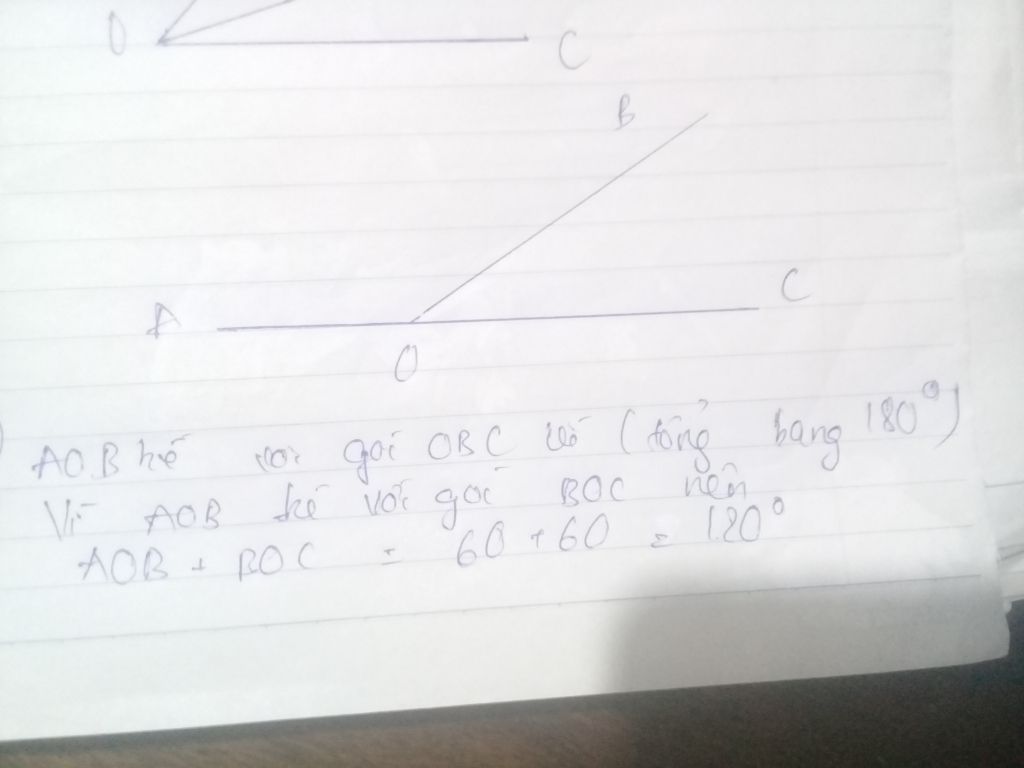 O
C
B
A
C
O
AOB kế với góc OBC có (tổng bang 180°)
Vì AOB kế với góc BOC nên
AOB + BOC = 60 + 60 = 120°